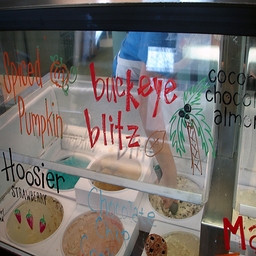 Spiced
Pumpkin
buckeye
blitz
coco
choco
almon
Hoosier
STRAWBERRY
Chocolate
Ma